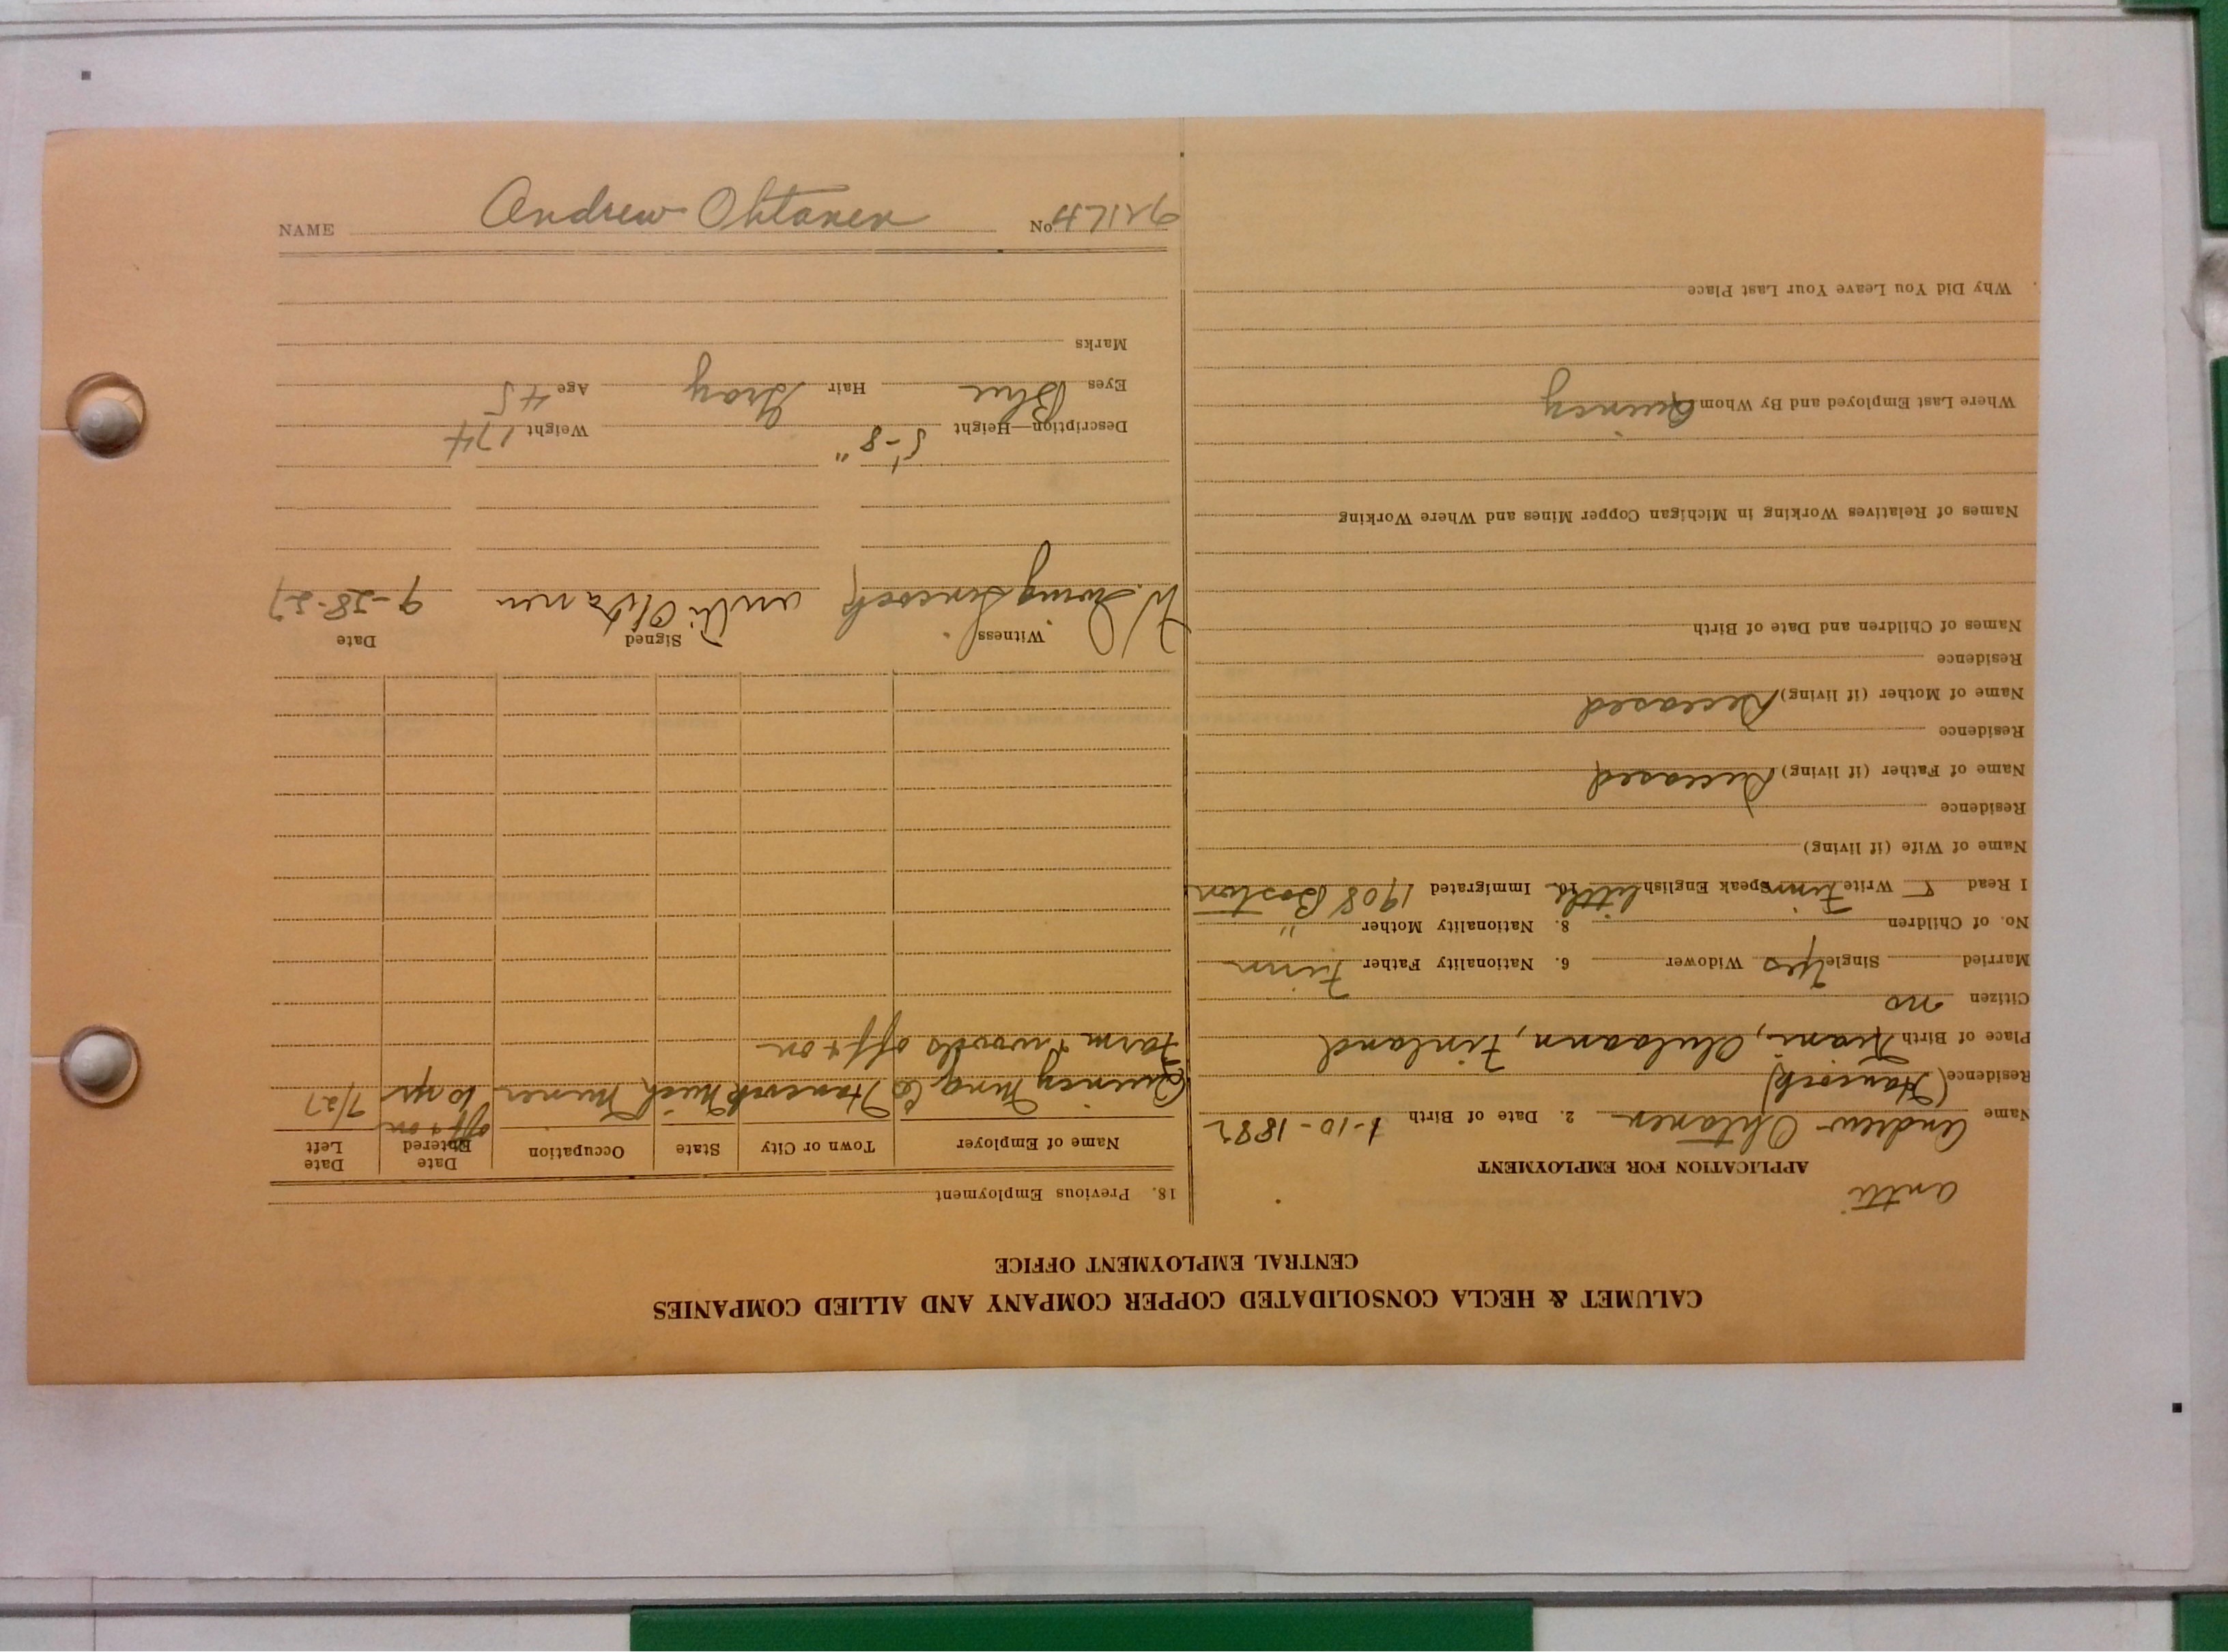 CALUMET & HECLA CONSOLIDATED COPPER COMPANY AND ALLIED COMPANIES
CENTRAL EMPLOYMENT OFFICE
antti
APPLICATION FOR EMPLOYMENT
Name Andrew Ohtanen 2. Date of Birth 1-10-1882
Residence (Hancock)
Place of Birth Finland
Citizen no
Married Single yes Widower 6. Nationality Father Finn
No. of Children 8. Nationality Mother "
I Read Write Finn Speak English little 10. Immigrated 1908 Boston
Name of Wife (if living)
Residence
Name of Father (if living) Deceased
Residence
Name of Mother (if living) Deceased
Residence
Names of Children and Date of Birth
Names of Relatives Working in Michigan Copper Mines and Where Working
Where Last Employed and By Whom Quincy
Why Did You Leave Your Last Place
18. Previous Employment
Name of Employer Town or City State Occupation Date Entered Date Left
Quincy Mng Co Hancock Mich Trimmer off + on 10 yrs 7/27
Farm + woods off + on
Witness Signed Date
antti Ohtanen 9-28-27
Description—Height 5'-8" Weight 174
Eyes Blue Hair Gray Age 45
Marks
NAME Andrew Ohtanen No.